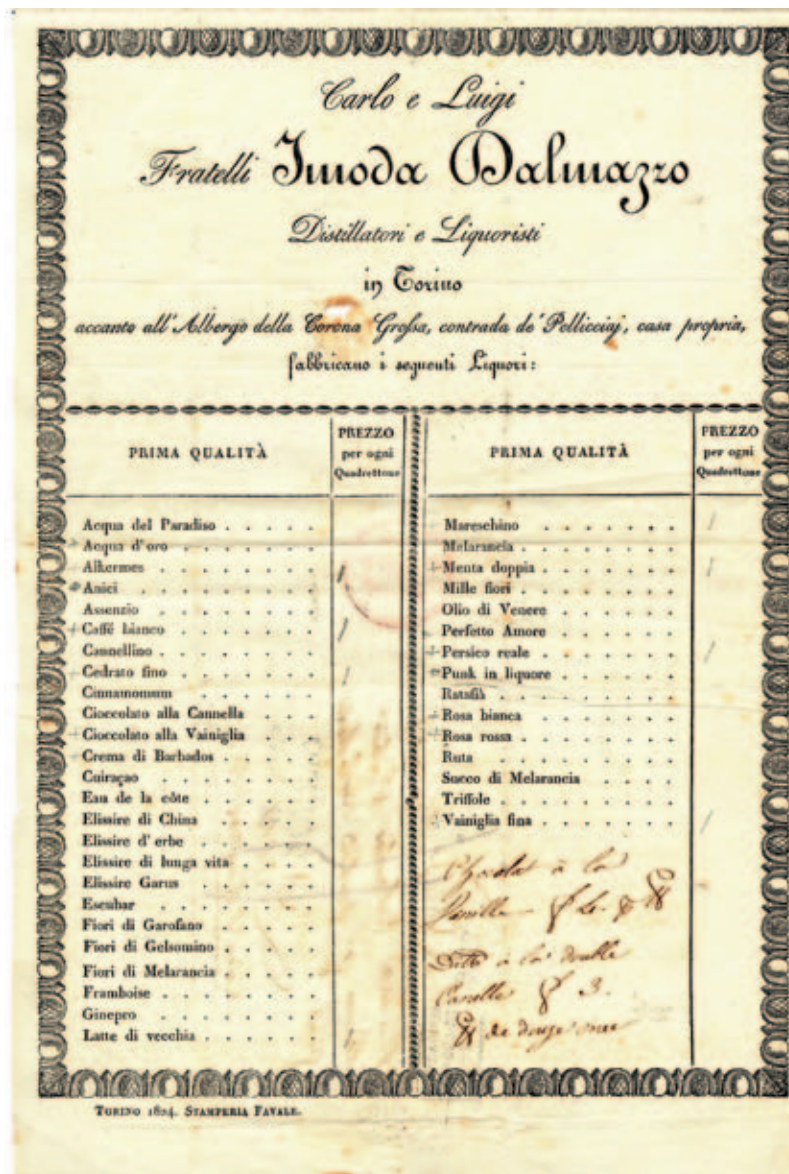 Carlo e Luigi
Fratelli Imoda Dalmazzo
Distillatori e Liquoristi
in Torino
accanto all'Albergo della Corona Grossa, contrada de' Pellicciaj, casa propria,
fabbricano i seguenti Liquori:
PRIMA QUALITÀ
PREZZO
per ogni
Quadrettone
Acqua del Paradiso . . . . .
Acqua d'oro . . . . . . .
Alkermes . . . . . . . .
Anici . . . . . . . .
Assenzio . . . . . . . .
Caffé bianco . . . . . . .
Cannellino . . . . . . . .
Cedrato fino . . . . . . .
Cinnamomum . . . . . .
Cioccolato alla Cannella . . .
Cioccolato alla Vainiglia . . .
Crema di Barbados . . . . .
Cuiraçao . . . . . . . .
Eau de la côte . . . . . .
Elissire di China . . . . . .
Elissire d'erbe . . . . . .
Elissire di lunga vita . . . .
Elissire Garus . . . . . .
Escubar . . . . . . . .
Fiori di Garofano . . . . . .
Fiori di Gelsomino . . . . .
Fiori di Melarancia . . . . .
Framboise . . . . . . . .
Ginepro . . . . . . . .
Latte di vecchia . . . . . .
PRIMA QUALITÀ
PREZZO
per ogni
Quadrettone
Mareschino . . . . . . .
Melarancia . . . . . . . .
Menta doppia . . . . . . .
Mille fiori . . . . . . . .
Olio di Venere . . . . . .
Perfetto Amore . . . . . .
Persico reale . . . . . . .
Punk in liquore . . . . . .
Ratafià . . . . . . . .
Rosa bianca . . . . . . .
Rosa rossa . . . . . . . .
Ruta . . . . . . . .
Succo di Melarancia . . . .
Triffole . . . . . . . .
Vainiglia fina . . . . . . .
Chocolat à la
Vanille
Ditto à la double
Canelle 3.
de douze onces
TORINO 1824. STAMPERIA FAVALE.